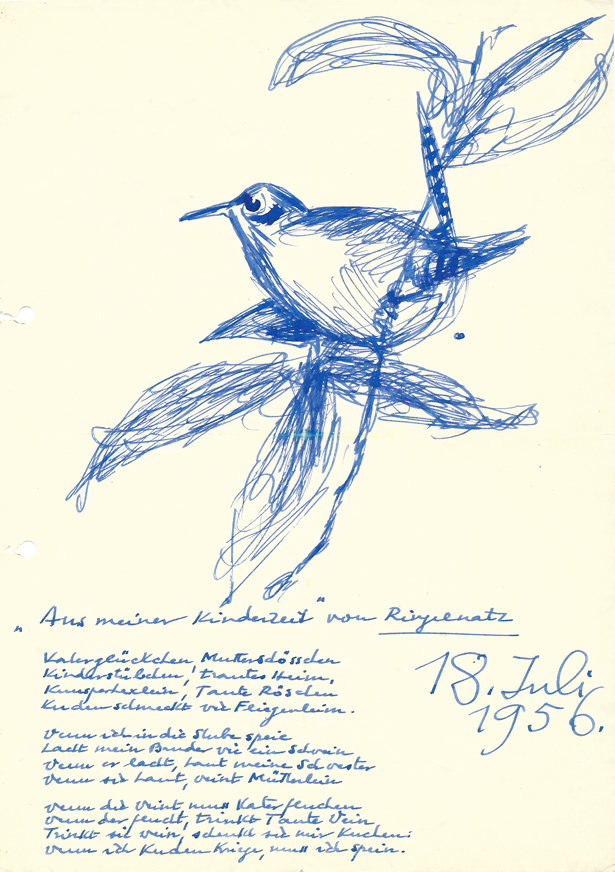 „Aus meiner Kinderzeit" von Ringelnatz
Vaterglückchen, Mutterschösschen
Kinderstübchen, trautes Heim,
Knusperhexlein, Tante Röschen
Kuchen schmeckt wie Fliegenleim.
Wenn ich in die Stube speie
Lacht mein Bruder wie ein Schwein
Wenn er lacht, haut meine Schwester
Wenn sie haut, weint Mütterlein
Wenn die weint, muss Vater fluchen
Wenn der flucht, trinkt Tante Wein
Trinkt sie Wein, schenkt sie mir Kuchen:
Wenn ich Kuchen kriege, muss ich spein.
18. Juli
1956.